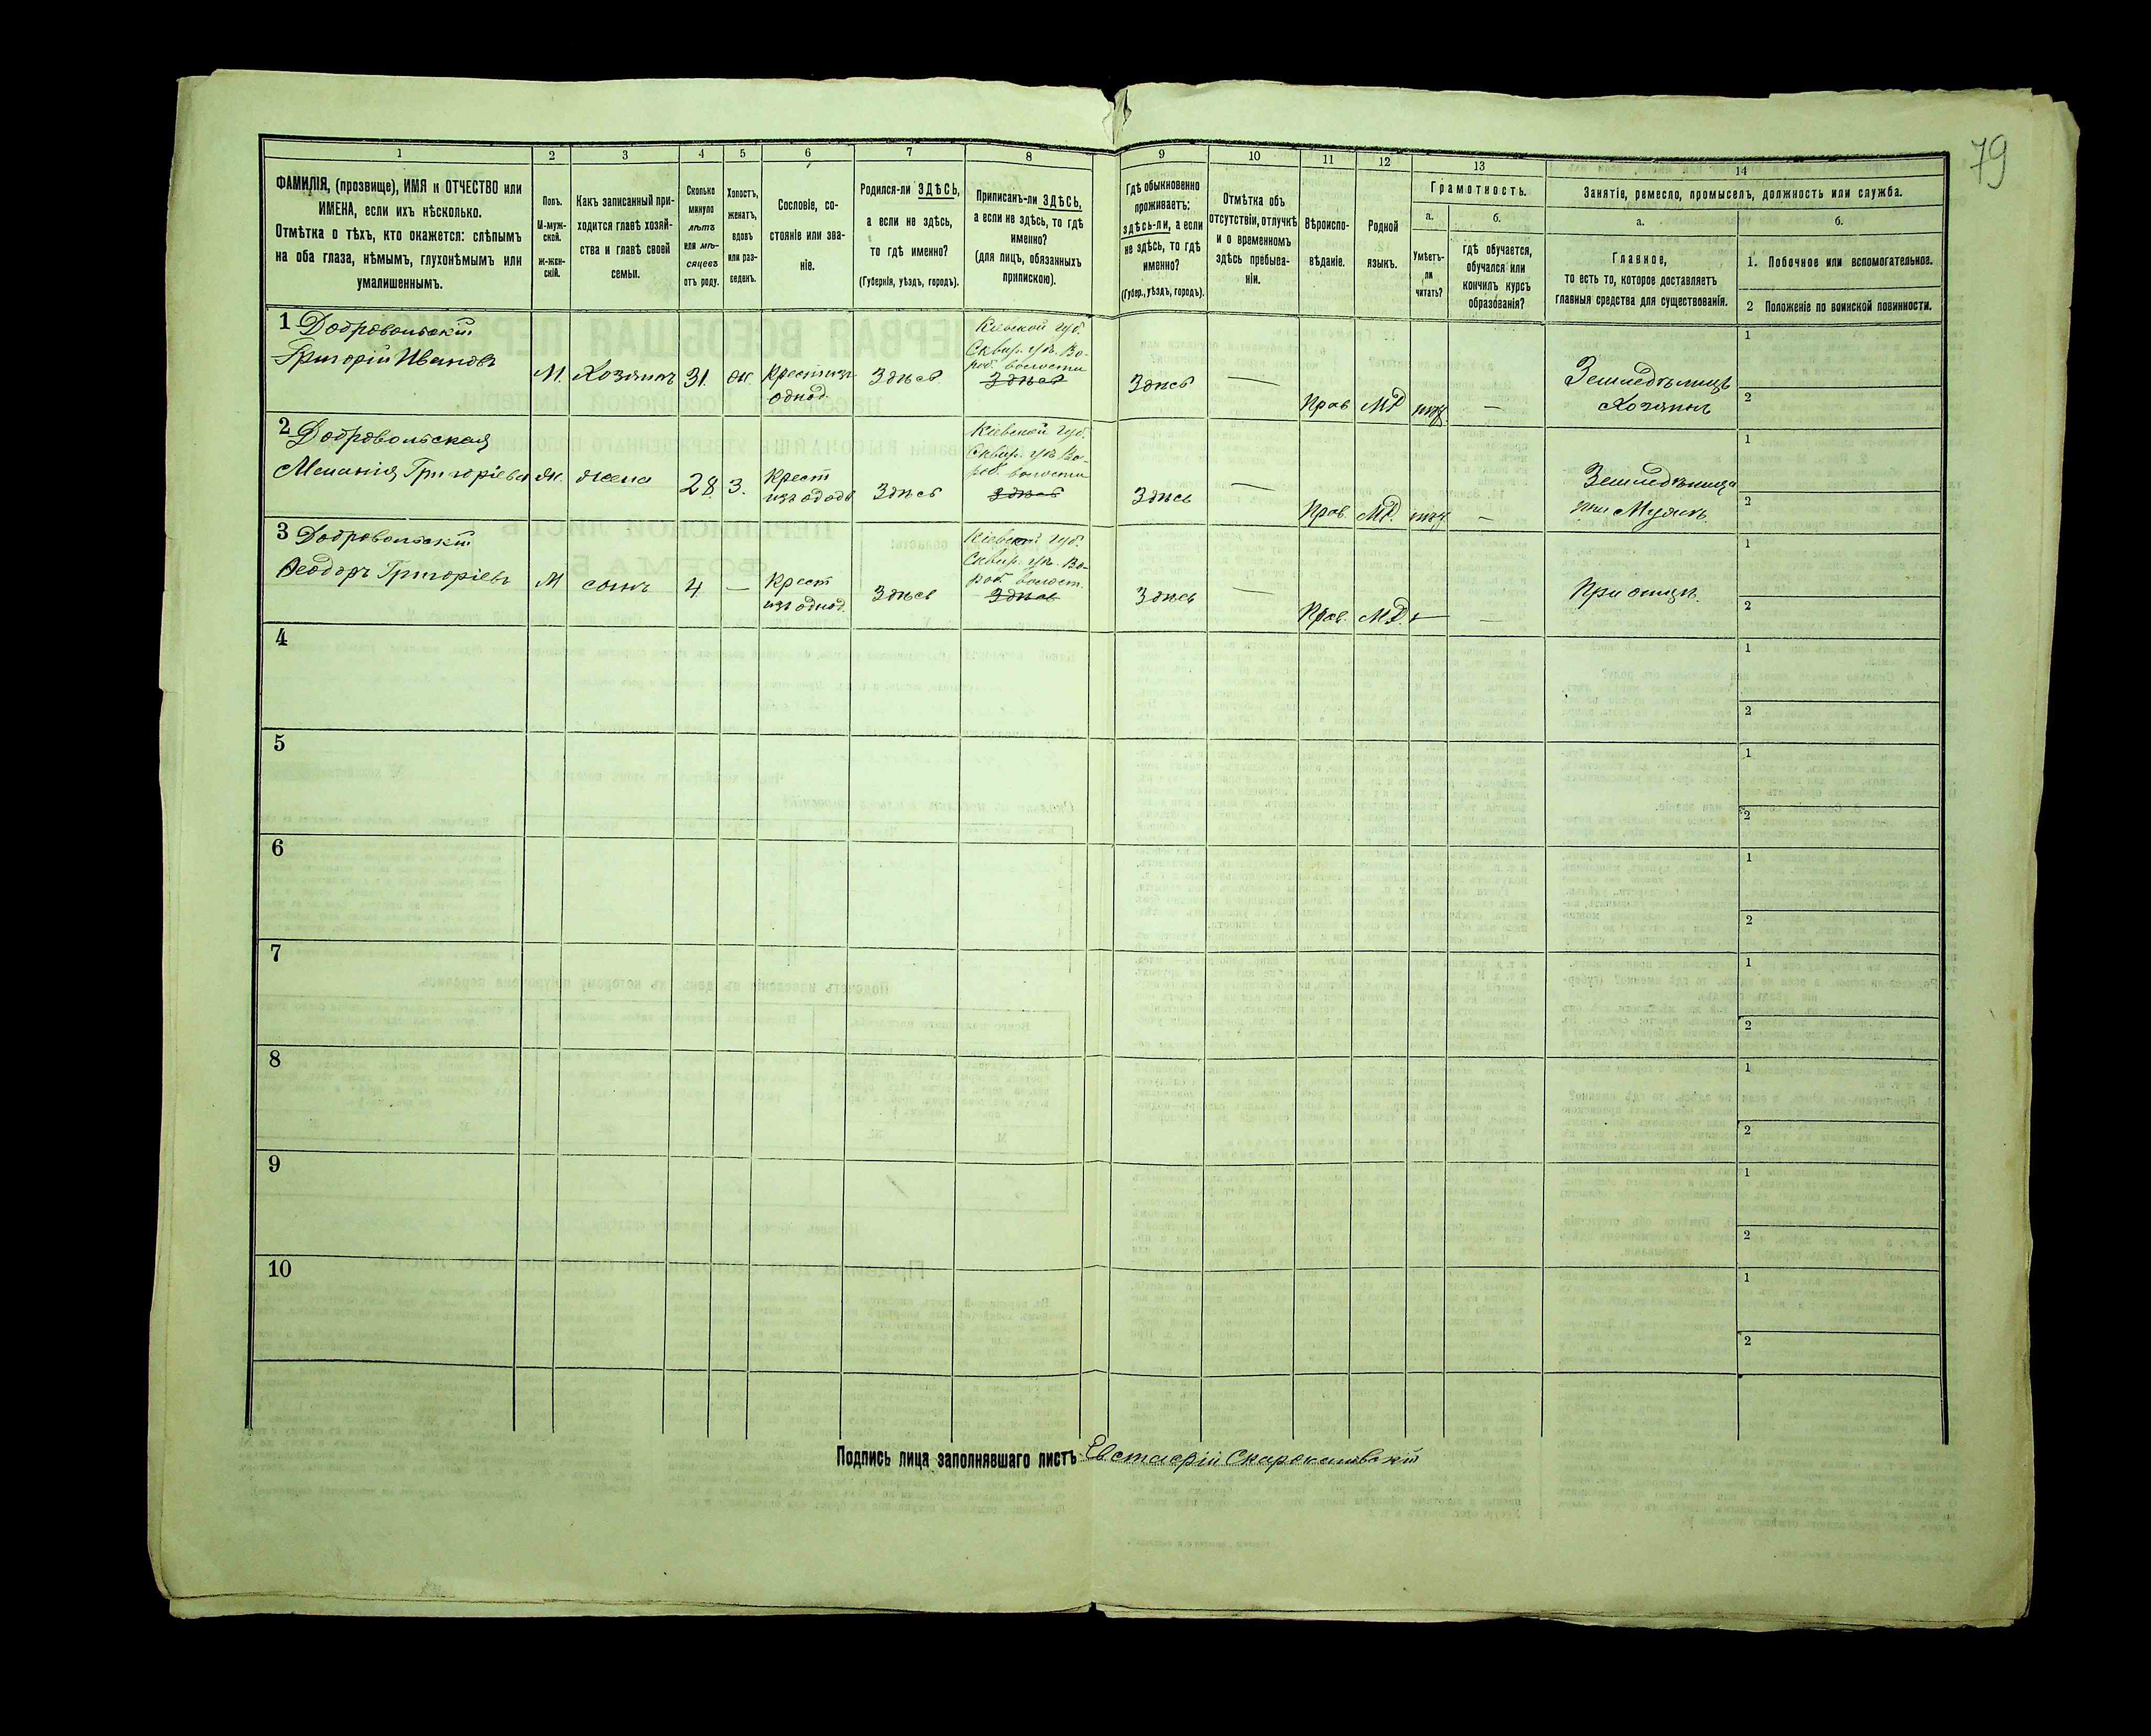 79
1 2 3 4 5 6 7 8 9 10 11 12 13 14
ФАМИЛІЯ, (прозвище), ИМЯ и ОТЧЕСТВО или
ИМЕНА, если ихъ нѣсколько.
Отмѣтка о тѣхъ, кто окажется: слѣпымъ
на оба глаза, нѣмымъ, глухонѣмымъ или
умалишеннымъ.
Полъ.
М-муж-
ской.
ж-жен-
скій.
Какъ записанный при-
ходится главѣ хозяй-
ства и главѣ своей
семьи.
Сколько
минуло
лѣтъ
или мѣ-
сяцевъ
отъ роду.
Холостъ,
женатъ,
вдовъ
или раз-
веденъ.
Сословіе, со-
стояніе или зва-
ніе.
Родился-ли ЗДѢСЬ,
а если не здѣсь,
то гдѣ именно?
(Губернія, уѣздъ, городъ).
Приписанъ-ли ЗДѢСЬ,
а если не здѣсь, то гдѣ
именно?
(для лицъ, обязанныхъ
припискою).
Гдѣ обыкновенно
проживаетъ:
здѣсь-ли, а если
не здѣсь, то гдѣ
именно?
(Губер., уѣздъ, городъ).
Отмѣтка объ
отсутствіи, отлучкѣ
и о временномъ
здѣсь пребыва-
ніи.
Вѣроиспо-
вѣданіе.
Родной
языкъ.
Грамотность.
а.
Умѣетъ-
ли
читать?
б.
гдѣ обучается,
обучался или
кончилъ курсъ
образованія?
Занятіе, ремесло, промыселъ, должность или служба.
а.
Главное,
то есть то, которое доставляетъ
главныя средства для существованія.
б.
1. Побочное или вспомогательное.
2 Положеніе по воинской повинности.
1 Добровольскій
Григорій Ивановъ
М. Хозяинъ 31. ж. Крест изъ
однод.
Здѣсь
Кіевской губ.
Сквир. уѣ. Во-
роб. волости
Здѣсь
Здѣсь — Прав МР — 
Земледѣлецъ
Хозяинъ
1
2
2 Добровольская
Меланія Григоріева ж. жена 28. З.
Крест
изъ однод
Здѣсь
Кіевской губ.
Сквир. уѣ. Во-
роб. волости
Здѣсь
Здѣсь — Прав. МР. —
при Мужѣ
1
2
3 Добровольскій
Ѳеодоръ Григоріевъ М сынъ 4 —
Крест
изъ однод.
Здѣсь
Кіевской губ.
Сквир. уѣ. Во-
роб волост.
Здѣсь
Здѣсь — Прав. МР. — —
При отцѣ.
1
2
4
1
2
5
1
2
6
1
2
7
1
2
8
1
2
9
1
2
10
1
2
Подпись лица заполнявшаго листъ Евстафій